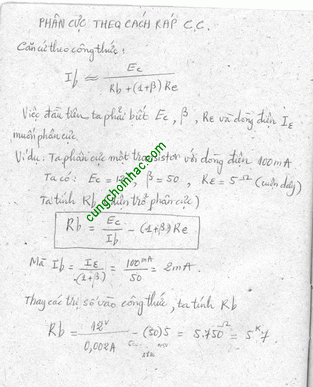 PHÂN CỰC THEO CÁCH RÁP C.C.
Căn cứ theo công thức:
Ib ≈ Ec / (Rb + (1+β) Re)
Việc đầu tiên ta phải biết Ec, β, Re và dòng điện IE
muốn phân cực.
Ví dụ: Ta phân cực một transistor với dòng điện 100mA
Ta có: Ec = 12V, β = 50, RE = 5Ω (cuộn dây)
Ta tính Rb (điện trở phân cực)
Rb = Ec / Ib - (1+β) Re
Mà Ib = IE / (1+β) = 100mA / 50 = 2mA.
Thay các trị số vào công thức, ta tính Rb
Rb = 12V / 0,002A - (50)5 = 5.750Ω = 5K7
cungchoinhac.com